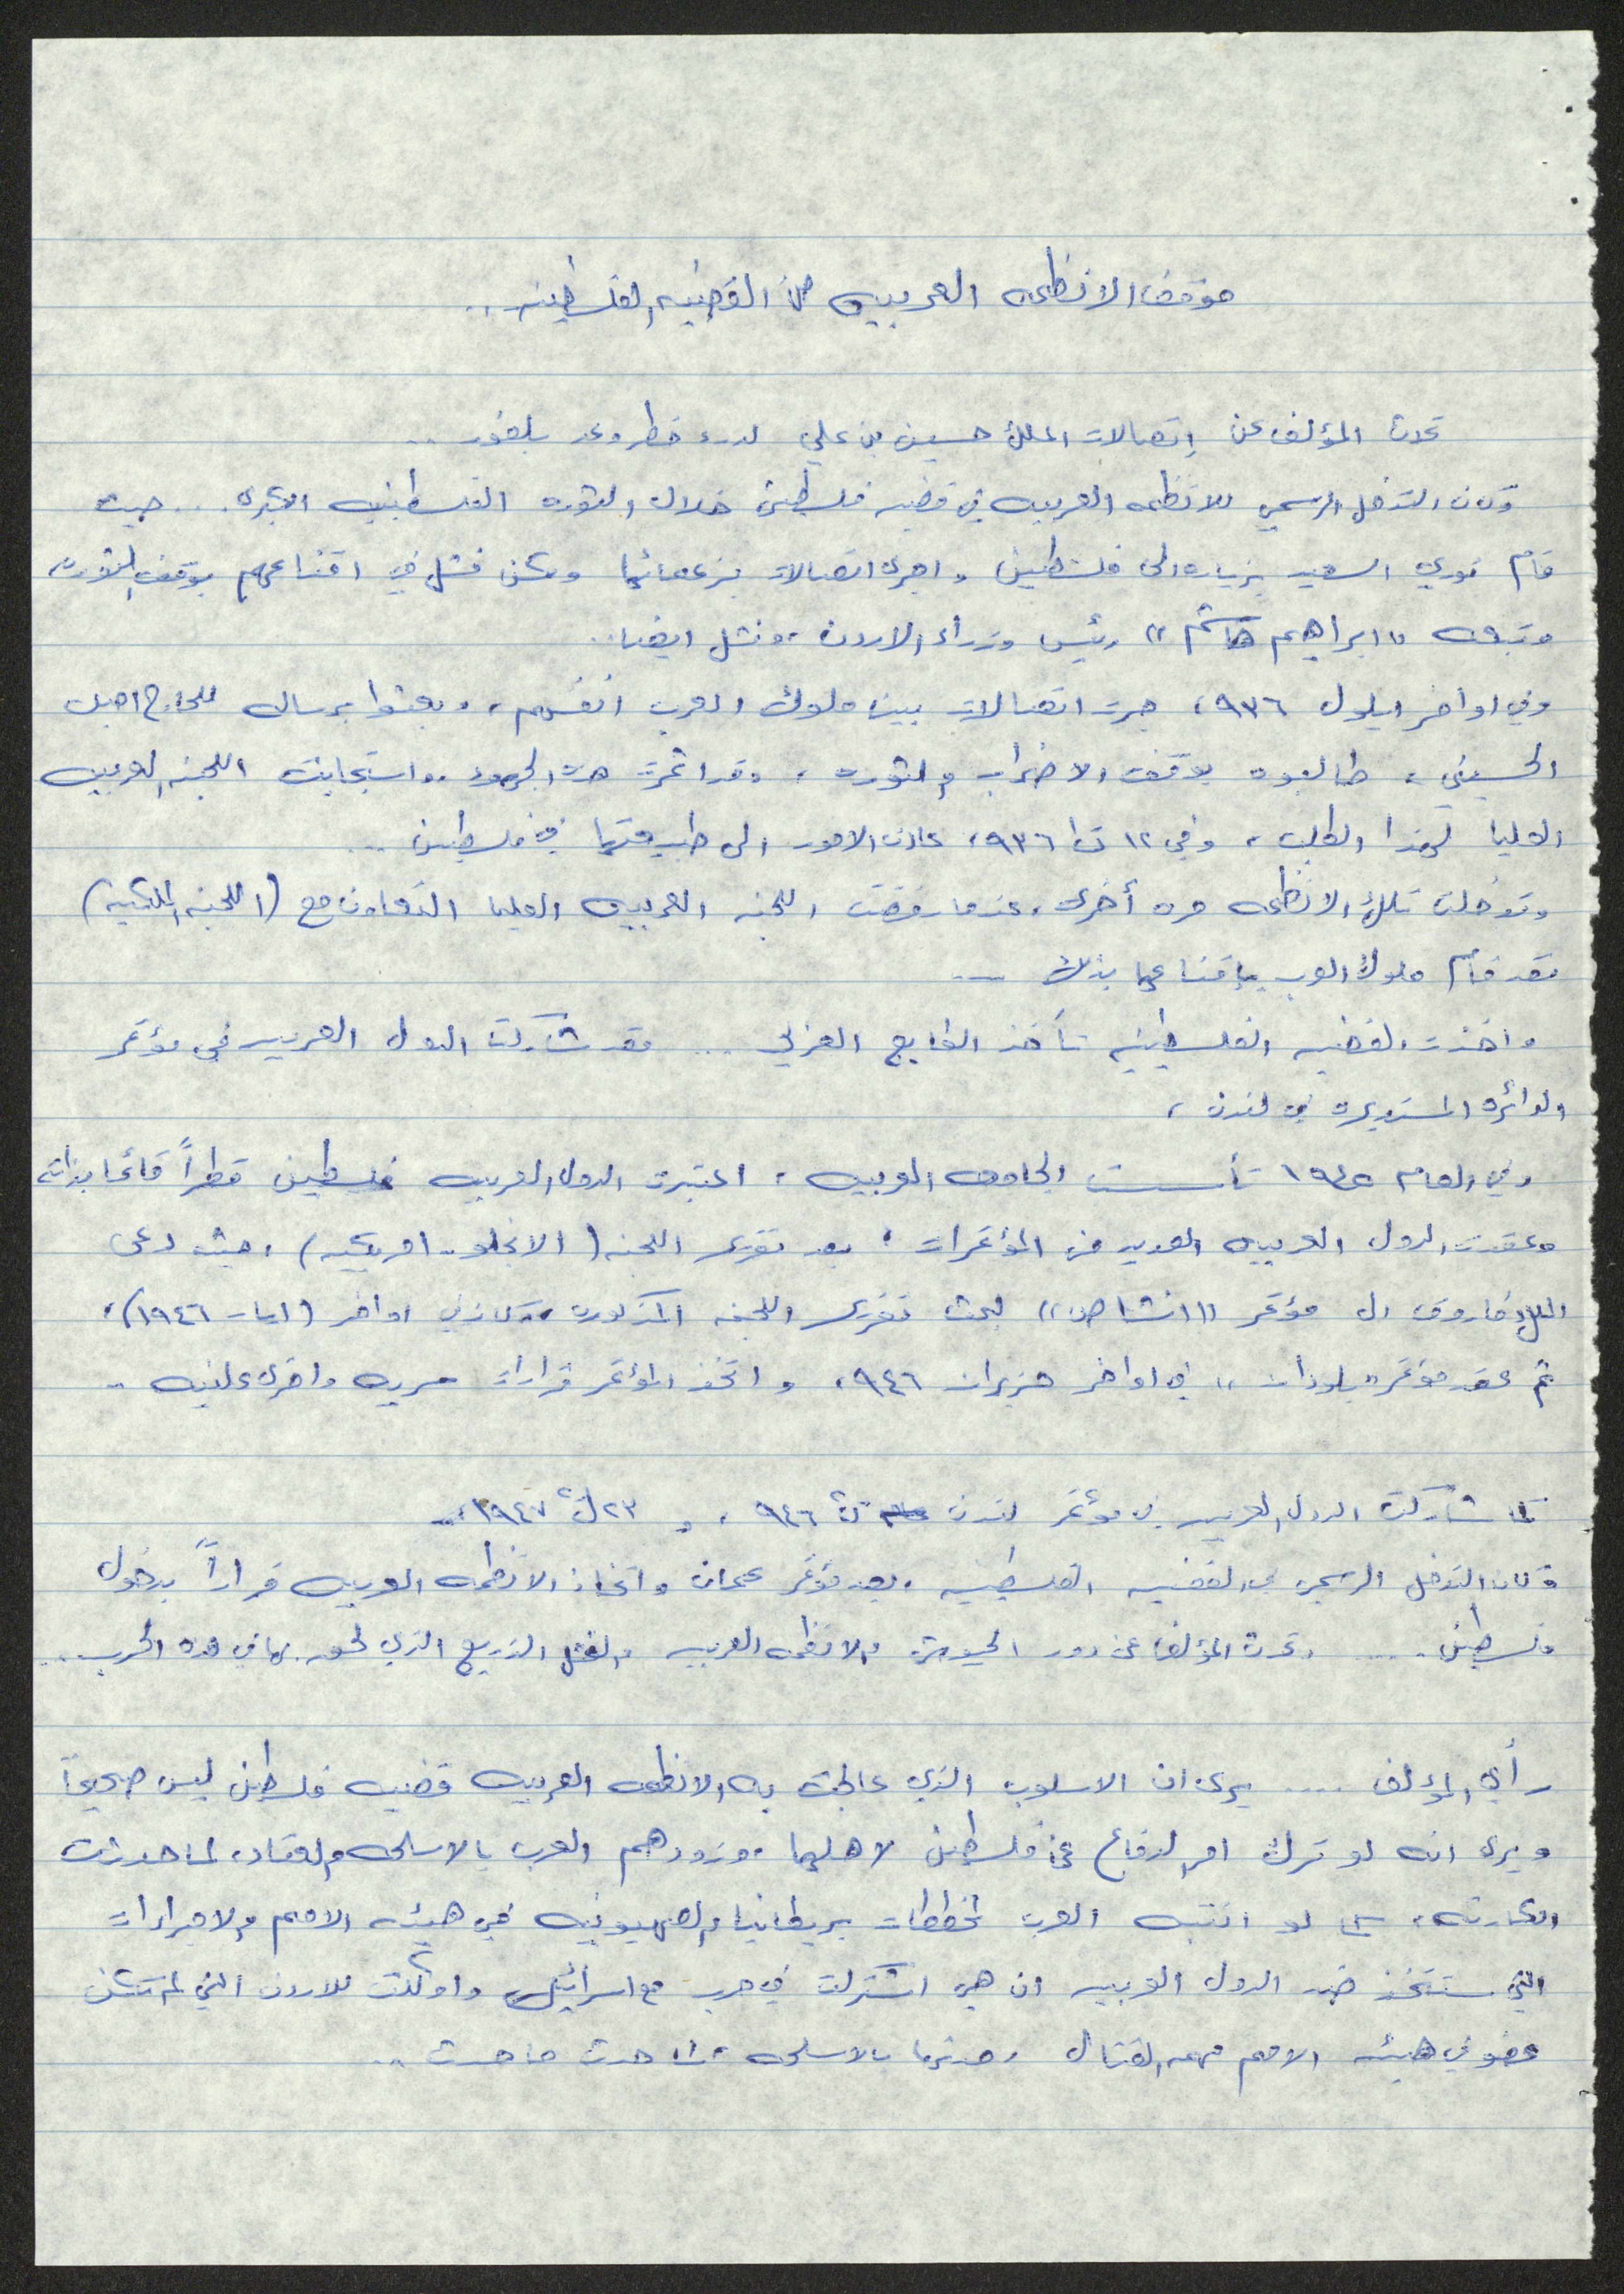 موقف الانظمه العربيه من القضيه الفلسطينيه ..
تحدث المؤلف عن إتصالات الملك حسين بن علي لدرء خطر وعد بلفور ..
وكان التدخل الرسمي للانظمه العربيه في قضيه فلسطين خلال الثوره الفلسطينيه الكبرى ... حيث
قام نوري السعيد بزياره الى فلسطين واجرى اتصالات بزعمائها ولكن فشل في اقناعهم بوقف الثوره
وتبعه "ابراهيم هاشم" رئيس وزراء الاردن، وفشل ايضا ..
وفي اواخر ايلول ٩٣٦، جرت اتصالات بين ملوك العرب انفسهم، وبعثوا برساله للحاج امين
الحسيني، طالبوه بوقف الاضراب والثوره، وقد اثمرت هذه الجهود، واستجابت اللجنه العربيه
العليا لهذا الطلب، وفي ١٢ ت١ ٩٣٦، عادت الامور الى طبيعتها في فلسطين ...
وتدخلت تلك الانظمه مره أخرى، عندما رفضت اللجنه العربيه العليا التعاون مع (اللجنه الملكيه)
فقد قام ملوك العرب بإقناعها بذلك ...
واخذت القضيه الفلسطينيه تأخذ الطابع العربي ... فقد شاركت الدول العربيه في مؤتمر
الدائره المستديره في لندن،
وفي العام ١٩٤٥ تأسست الجامعه العربيه، اعتبرت الدول العربيه فلسطين قطراً قائما بذاته
وعقدت الدول العربيه العديد من المؤتمرات، بعد تقرير اللجنه (الانجلو-امريكيه)، حيث دعى
الملك فاروق الى مؤتمر "انشاص" لبحث تقرير اللجنه المذكوره، وكان في اواخر (ايار ١٩٤٦)،
ثم عقد مؤتمر "بلودان" في اواخر حزيران ٩٤٦، واتخذ المؤتمر قرارات سريه واخرى علنيه ..
كما شاركت الدول العربيه في مؤتمر لندن ٩٤٦، و ٢٣ ك٢ ١٩٤٧ ..
وكان التدخل الرسمي في القضيه الفلسطينيه، بعد مؤتمر عمان واتخاذ الانظمه العربيه قراراً بدخول
فلسطين .... وتحدث المؤلف عن دور الجيوش والانظمه العربيه والفشل الذريع الذي لحق بها في هذه الحرب ..
رأي المؤلف .... يرى ان الاسلوب الذي عالجت به الانظمه العربيه قضيه فلسطين ليس صحيحاً
ويرى انه لو ترك امر الدفاع عن فلسطين لاهليها، وزودهم العرب بالاسلحه والعتاد، لما حدثت
الكارثه، كما لو انتبه العرب لمخططات بريطانيا والصهيونيه في هيئه الامم والاجراءات
التي ستتخذ ضد الدول العربيه ان هي اشتركت في حرب مع اسرائيل، واوكلت للاردن التي لم تكن
عضو في هيئه الامم مهمه القتال ومدتها بالاسلحه، لما حدث ما حدث ..